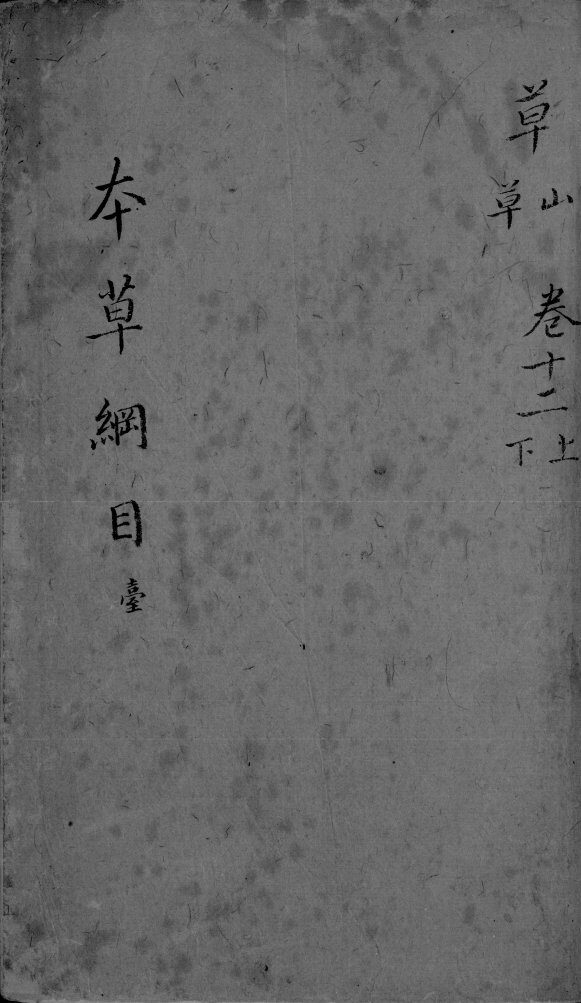 草
山草
卷十二
上下
本草綱目 臺